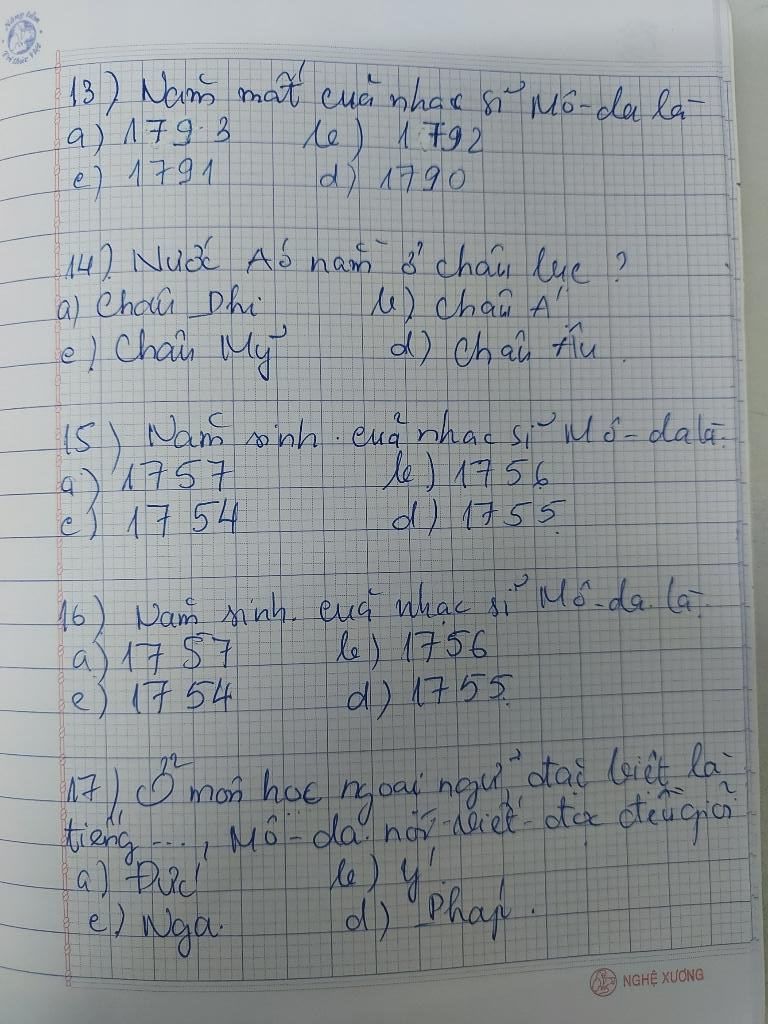 Nâng tầm
Tri thức Việt
13) Năm mất của nhạc sĩ Mô-da là
a) 1793 b) 1792
c) 1791 d) 1790
14) Nước Áo nằm ở châu lục ?
a) Châu Phi b) Châu Á
c) Châu Mỹ d) Châu Âu
15) Năm sinh của nhạc sĩ Mô-da là
a) 1757 b) 1756
c) 1754 d) 1755
16) Năm sinh của nhạc sĩ Mô-da là
a) 1757 b) 1756
c) 1754 d) 1755
17) Ở môn học ngoại ngữ, đặc biệt là
tiếng ..., Mô-da nói-viết-đọc đều giỏi
a) Đức b) Ý
c) Nga. d) Pháp.
NGHỆ XƯƠNG